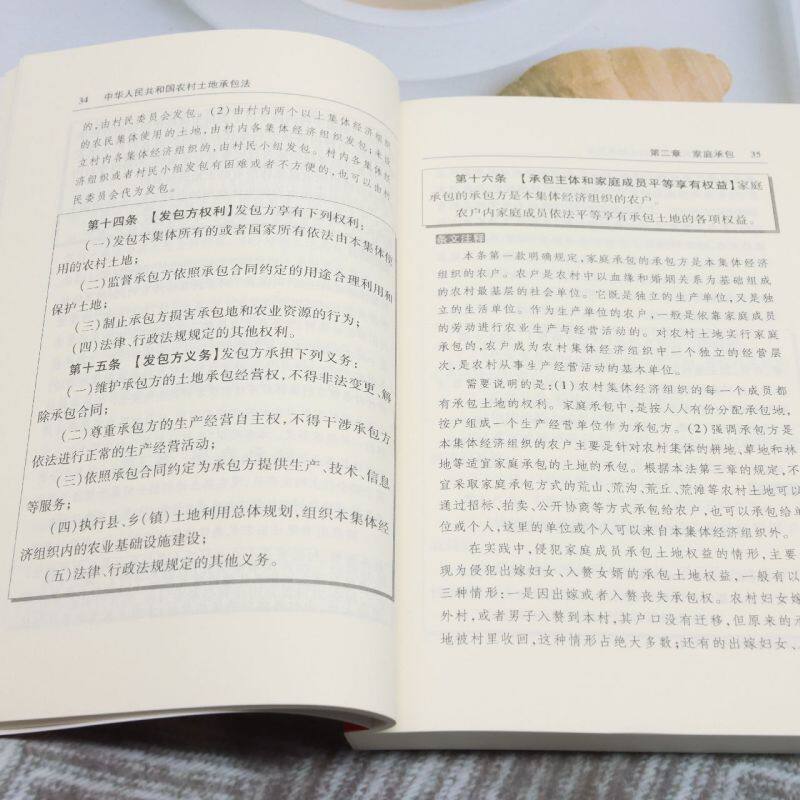 34 中华人民共和国农村土地承包法
的,由村民委员会发包。(2)由村内两个以上集体经济组织
的农民集体使用的土地,由村内各集体经济组织发包;未设
立村内各集体经济组织的,由村民小组发包。村内各集体经
济组织或者村民小组发包有困难或者不方便的,也可以由村
民委员会代为发包。
第十四条 【发包方权利】发包方享有下列权利:
(一)发包本集体所有的或者国家所有依法由本集体使
用的农村土地;
(二)监督承包方依照承包合同约定的用途合理利用和
保护土地;
(三)制止承包方损害承包地和农业资源的行为;
(四)法律、行政法规规定的其他权利。
第十五条 【发包方义务】发包方承担下列义务:
(一)维护承包方的土地承包经营权,不得非法变更、解
除承包合同;
(二)尊重承包方的生产经营自主权,不得干涉承包方
依法进行正常的生产经营活动;
(三)依照承包合同约定为承包方提供生产、技术、信息
等服务;
(四)执行县、乡(镇)土地利用总体规划,组织本集体经
济组织内的农业基础设施建设;
(五)法律、行政法规规定的其他义务。
第二章 家庭承包 35
第十六条 【承包主体和家庭成员平等享有权益】家庭
承包的承包方是本集体经济组织的农户。
农户内家庭成员依法平等享有承包土地的各项权益。
条文注释
本条第一款明确规定,家庭承包的承包方是本集体经济
组织的农户。农户是农村中以血缘和婚姻关系为基础组成
的农村最基层的社会单位。它既是独立的生产单位,又是独
立的生活单位。作为生产单位的农户,一般是依靠家庭成员
的劳动进行农业生产与经营活动的。对农村土地实行家庭
承包的,农户成为农村集体经济组织中一个独立的经营层
次,是农村从事生产经营活动的基本单位。
需要说明的是:(1)农村集体经济组织的每一个成员都
有承包土地的权利。家庭承包中,是按人人有份分配承包地,
按户组成一个生产经营单位作为承包方。(2)强调承包方是
本集体经济组织的农户主要是针对农村集体的耕地、草地和林
地等适宜家庭承包的土地的承包。根据本法第三章的规定,不
宜采取家庭承包方式的荒山、荒沟、荒丘、荒滩等农村土地可以
通过招标、拍卖、公开协商等方式承包给农户,也可以承包给单
位或个人,这里的单位或个人可以来自本集体经济组织外。
在实践中,侵犯家庭成员承包土地权益的情形,主要
现为侵犯出嫁妇女、入赘女婿的承包土地权益,一般有以
三种情形:一是因出嫁或者入赘丧失承包权。农村妇女嫁
外村,或者男子入赘到本村,其户口没有迁移,但原来的承
地被村里收回,这种情形占绝大多数;还有的出嫁妇女、